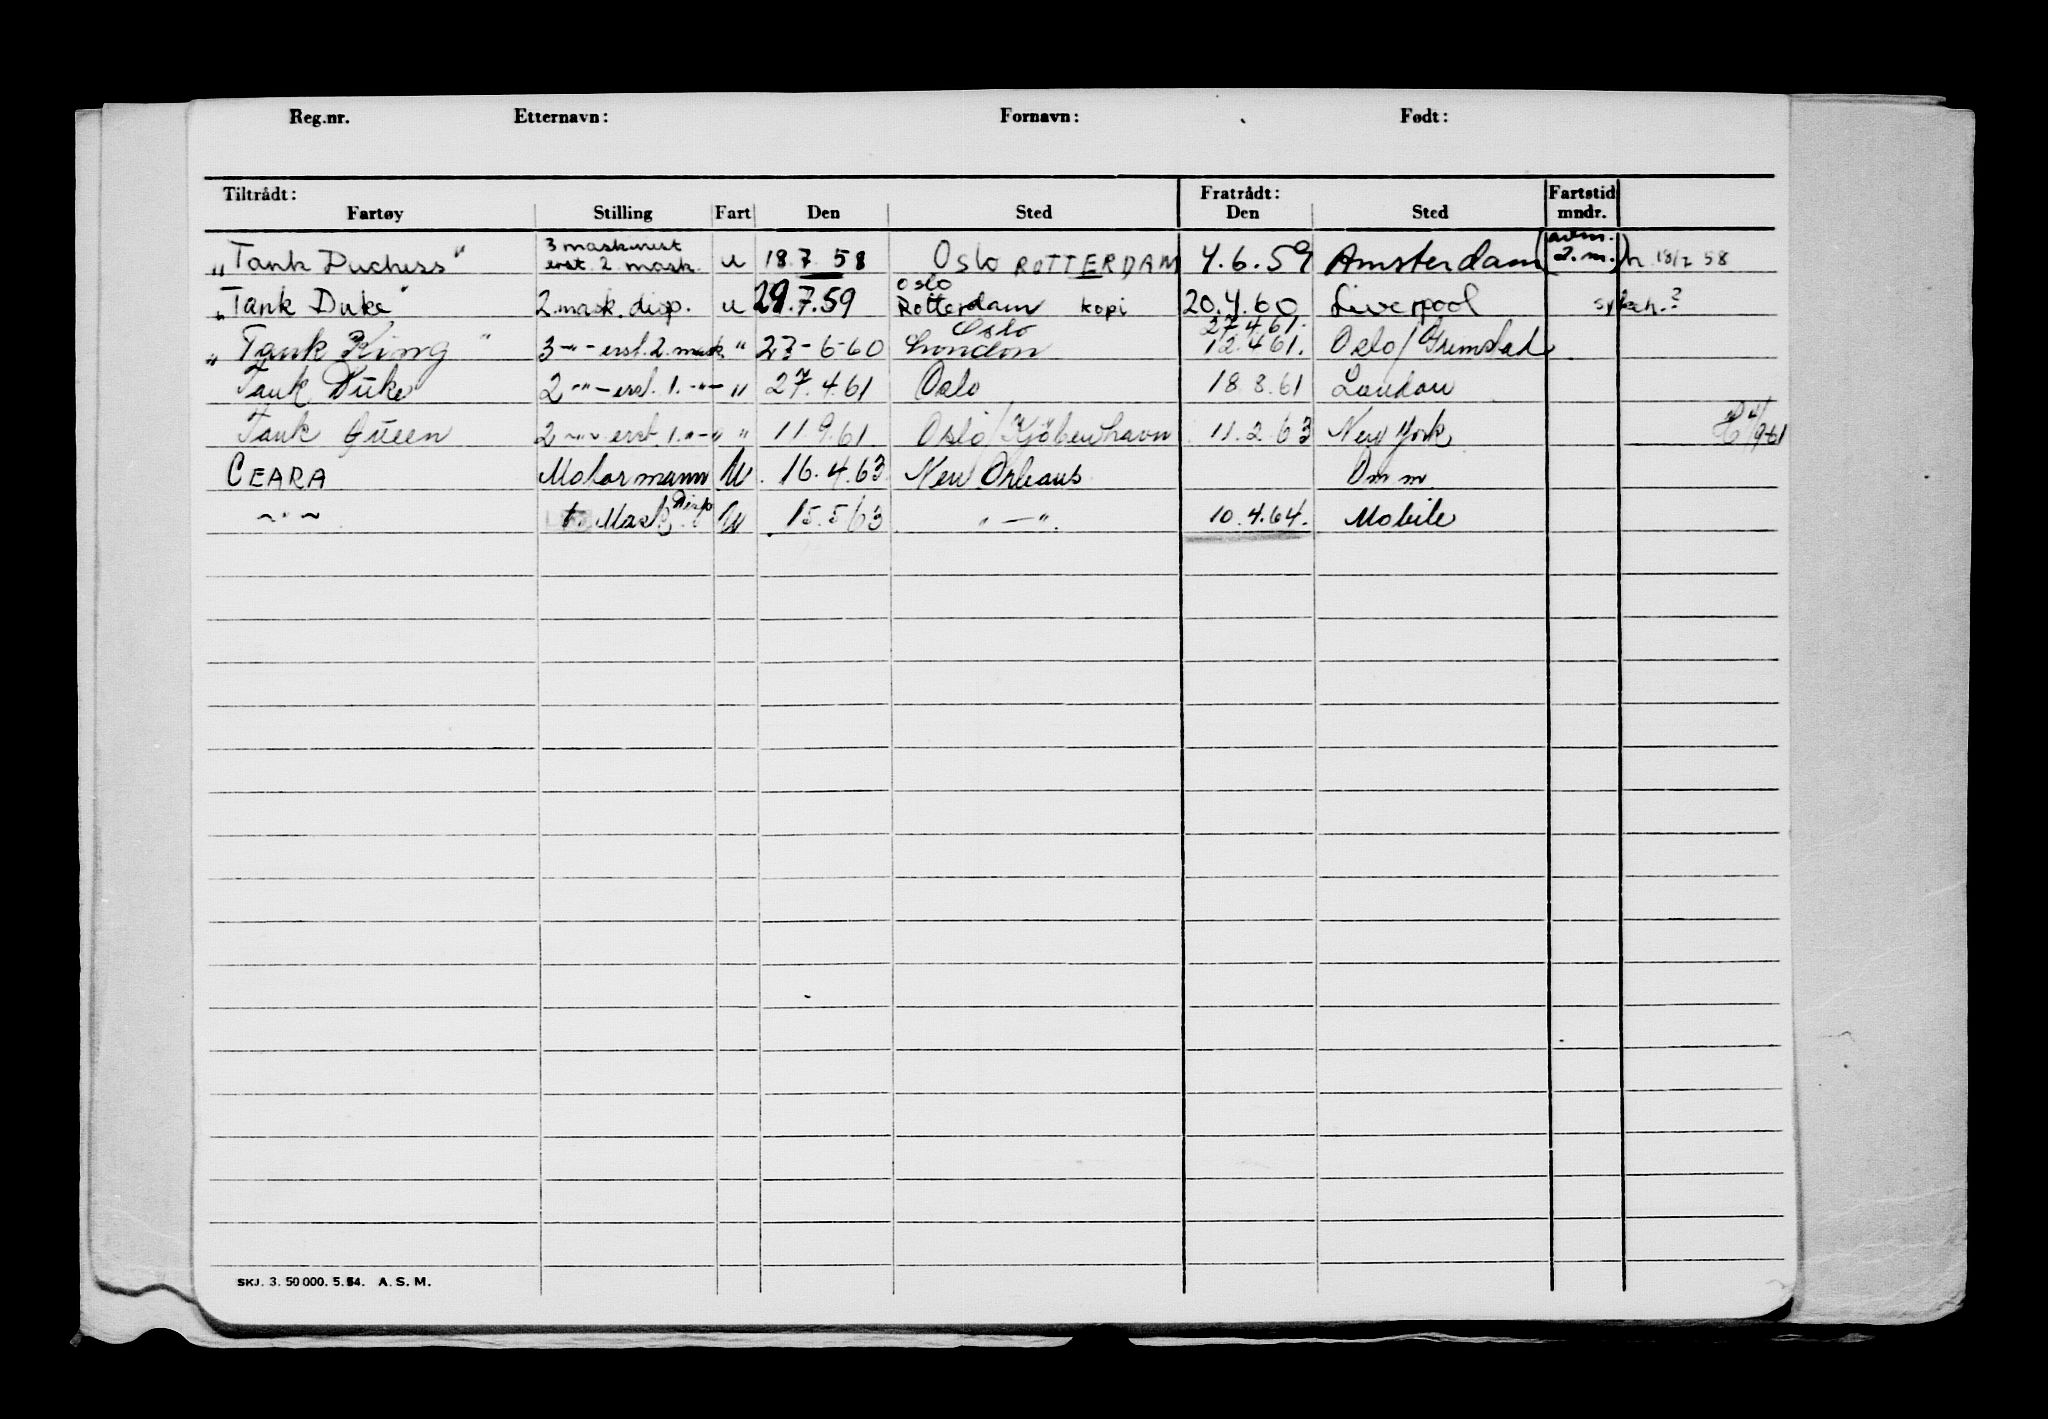 Reg.nr. Etternavn: Fornavn: Født:
Tiltrådt: Fratrådt: Fartstid
Fartøy Stilling Fart Den Sted Den Sted mndr.
3 maskinist
"Tank Duchess" erst. 2 mask. u 18.7.58 Oslo ROTTERDAM 4.6.59 Amsterdam 2.m.) 18/7 58
Oslo
"Tank Duke" 2.mask.disp. u 29.7.59 Rotterdam kopi 20.4.60 Liverpool
Oslo 27.4.61.
"Tank King" 3 -"- erst. 2. mask " 23-6-60 London 12.4.61. Oslo/Grimstad
Tank Duke 2 -"- erst. 1. -"- " 27.4.61 Oslo 18.8.61 London
Tank Queen 2 -"- erst. 1. -"- " 11.9.61 Oslo/Kjöbenhavn 11.2.63 New York
CEARA Motormann U 16.4.63 New Orleans Omm
Disp
-"- Mask U 15.5.63 " — ". 10.4.64. Mobile
SKJ. 3. 50 000. 5.54. A. S. M.